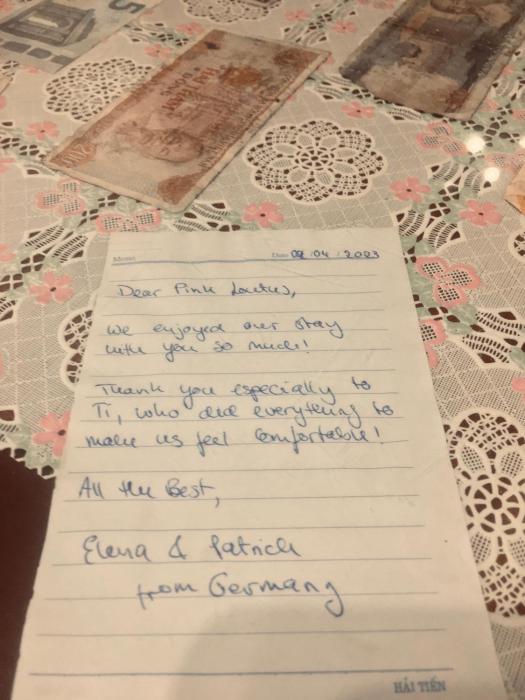 5
200
HAI TRĂM ĐỒNG
Memo Date 02/04/2023
Dear Pink Loutus,
we enjoyed our stay
with you so much!
Thank you especially to
Ti, who did everything to
make us feel comfortable!
All the Best,
Elena & Patrick
from Germany
HẢI TIẾN